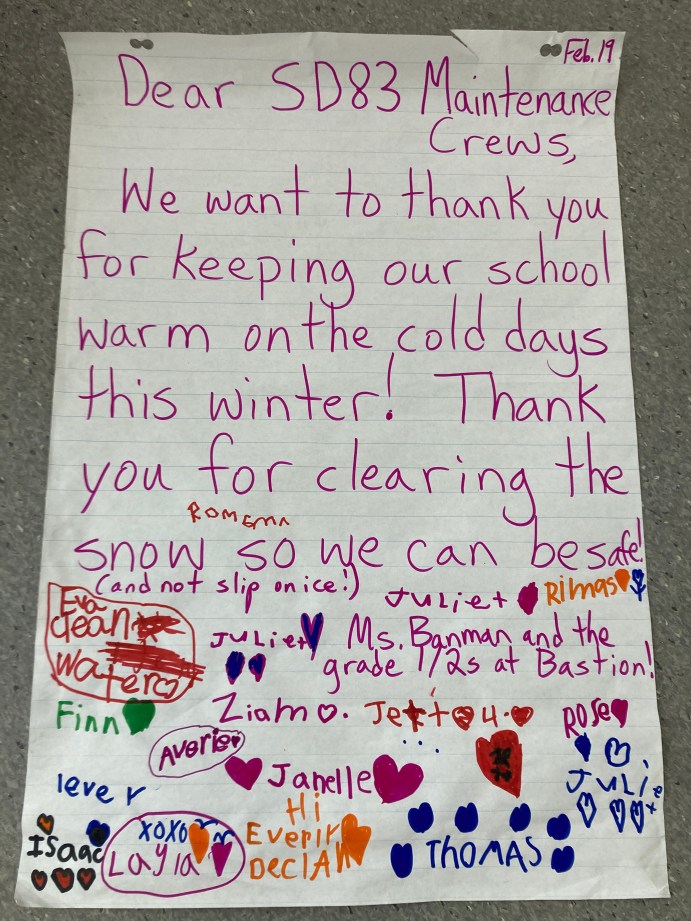 Feb. 19
Dear SD83 Maintenance
Crews,
We want to thank you
for keeping our school
warm on the cold days
this winter! Thank
you for clearing the
ROMEMA
snow so we can be safe!
(and not slip on ice!)
Juliet
Rimas
Eva
clean
water
Juliet
Ms. Banman and the
grade 1/2s at Bastion!
Finn
Ziam
Rose
Averie
Janelle
lever
Julie
t
Isaac
XOXO
Layla
Hi
THOMAS